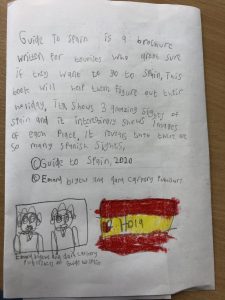 Guide To Spain is a brochure
written for tourists who arent sure
if they want to go to Spain, This
book will help them figure out their
holiday, It shows 3 amazing sights of
Spain and it interestingly shows images
of each Place, It reveals that there are
so many Spanish Sights,
©Guide to Spain, 2020
© Emond and Publishers.
HOLA
and
Publishers of
Guide to Spain